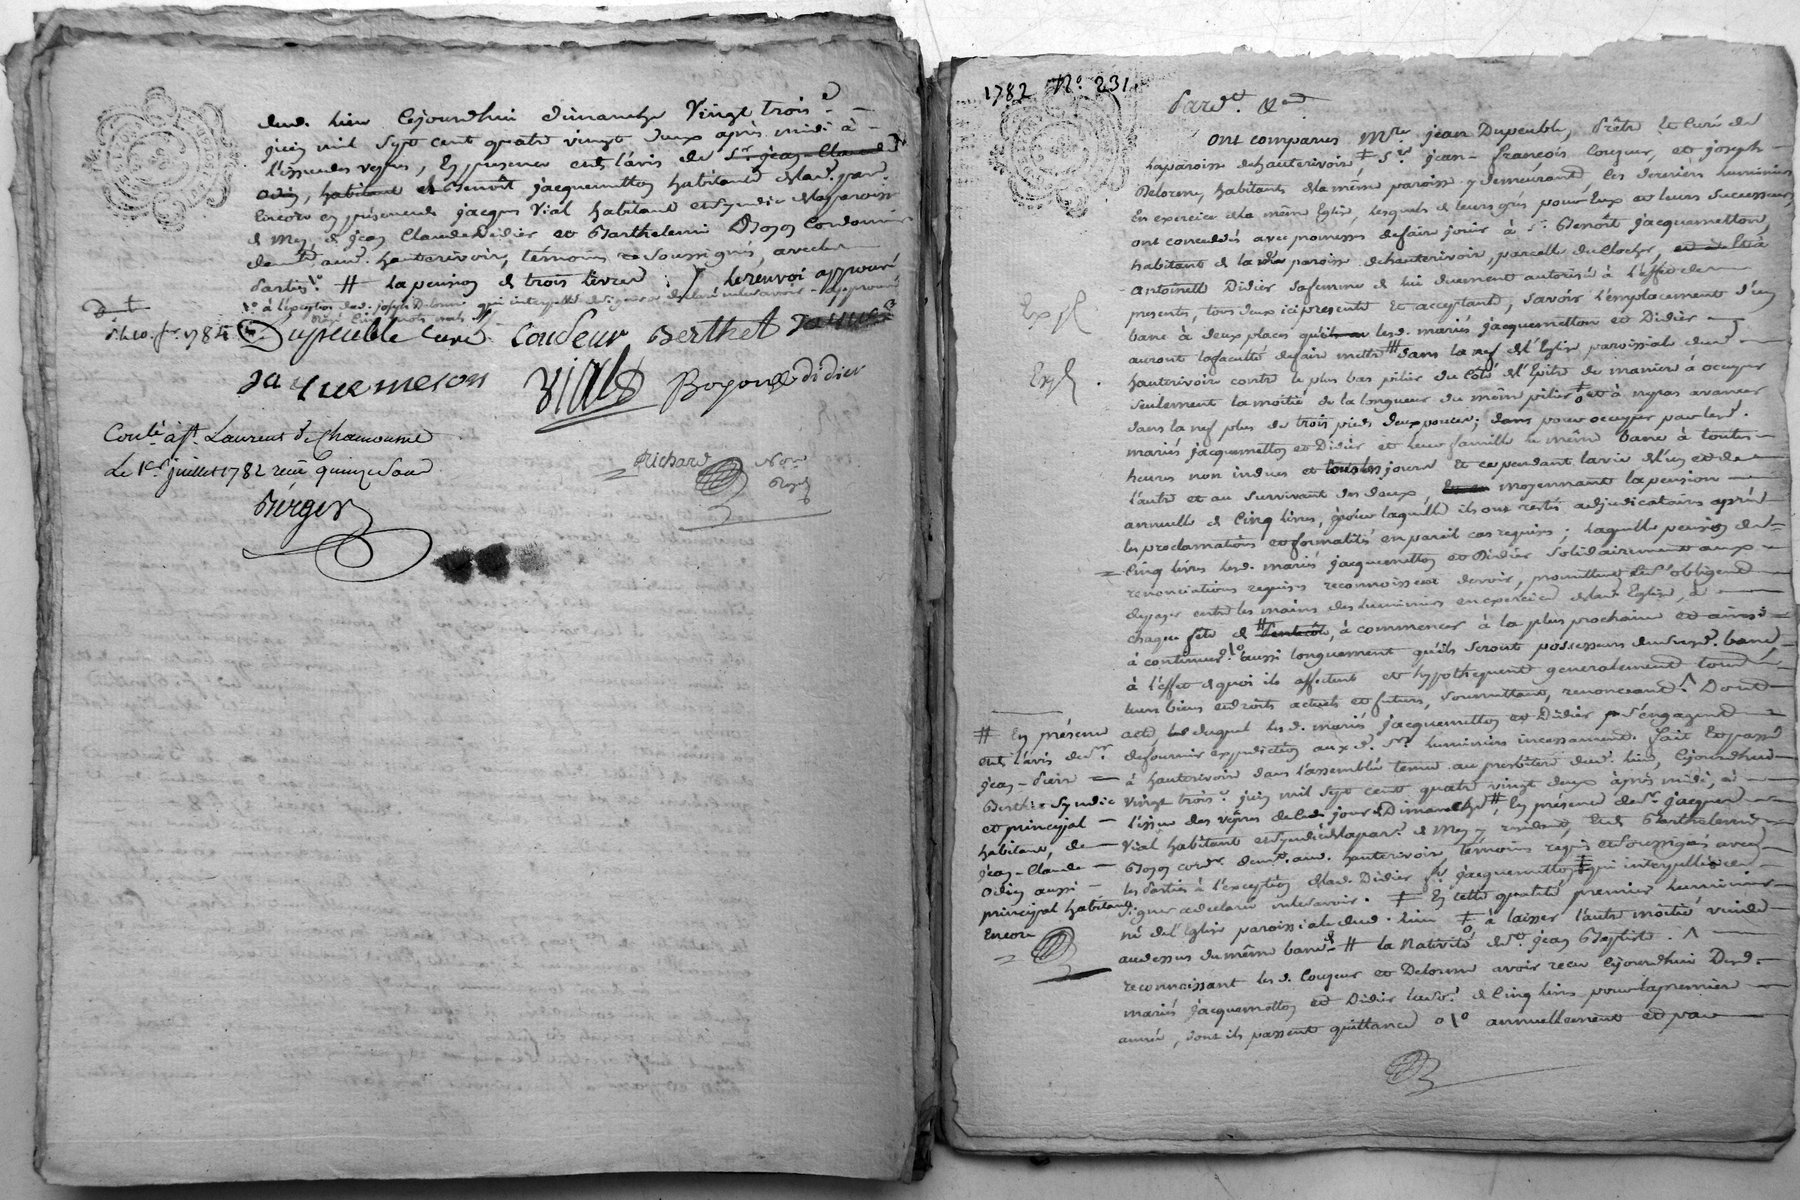 dud. lieu Cejourdhui dimanche vingt trois
juin mil sept cent quatre vingt deux après midi à
l'issue des vepres, En presence et de l'avis de Sr. jean-Claude
Odin, habitant et Benoît jacquemetton habitants de lad. par.
Encore en présence de jacques Vial habitant et Syndic de la paroisse
de Mey, de jean Claude Didier et Barthelemi Boyon Cordonnier
dem.t aud. hauterivoir, témoins Soussignés, avec les
Parties \o # la pension de trois livres : / le renvoi approuvé
\o à l'exception de d. joseph Delorme qui interpellé de signer a declaré ne le savoir - approuvé
Dupeuble Curé Couseur Berthet
jaquemeton Vial Boyon Didier
Conté à St. Laurent de Chamousset
Le 1er juillet 1782 reçu quinze sous
Berger
Richard Nore
Royal
1782 N.o 231.
Pard.t Nore
Ont comparus Mre jean Dupeuble, Prêtre Et Curé de
la paroisse de hauterivoir ‡ Sr. jean-françois Couzeur, et joseph
Delorme, habitants de la même paroisse y demeurant, les derniers luminiers
En exercice de la même Eglise, lesquels de leurs gres pour Eux et leurs Successeurs
ont concedés avec promesse de faire jouir à Sr. Benoît jacquemetton,
habitant de la même paroisse de hauterivoir, parcelle du Clocher, et à
antoinette Didier sa femme de lui duement autorisée à l'effet des
presents, tous deux ici presents Et acceptant, savoir l'emplacement d'un
banc à deux places que lesd. mariés jacquemetton et Didier
auront la faculté de faire mettre # dans la nef de l'Eglise paroissiale dud.
hauterivoir contre le plus bas pilier du Côté de l'Epitre de maniere à occuper
seulement la moitié de la longueur du même pilier ‡ et à n'y pas avancer
dans la nef plus de trois pieds deux pouces; dans pour occuper par lesd.
mariés jacquemetton et Didier et leur famille le même banc à toutes
heures non indues et tous les jours Et ce pendant la vie de l'un et de
l'autre et au survivant des deux, moyennant la pension
annuelle de Cinq livres, à laquelle ils ont restés adjudicataires après
les proclamations et formalités en pareil cas requises; laquelle pension de
Cinq livres lesd. mariés jacquemetton et Didier solidairement aux
renonciations requises reconnoissent devoir, promettent et s'obligent
de payer entre les mains des luminiers en exercice de lad. Eglise, à
chaque fête de # Pentecôte, à commencer à la plus prochaine et ainsi
à continuer \o aussi longuement qu'ils seront possesseurs du susd. banc,
à l'effet de quoi ils affectent et hypothequent generalement tous
leurs biens et droits actuels et futurs, soumettant, renonceant. ^ Dont
acte duquel lesd. mariés jacquemetton et Didier s'engagent
de fournir expedition auxd. Srs. luminiers incessamment. fait Et passé
à hauterivoir dans l'assemblée tenue au presbitere dud. lieu, Cejourdhui
vingt trois juin mil sept cent quatre vingt deux après midi, à
l'issue des vepres de led. jour de Dimanche # En présence de Sr. jacques
Vial habitant et Syndic de la par. de Mey y résident, Et de Barthelemi
Boyon cord.r dem.t aud. hauterivoir, témoins requis et Soussignés avec
les Parties à l'exception de lad. Didier qui interpellée de
signer a declaré ne le savoir. ‡ En cette qualité premier luminier
né de l'Eglise paroissiale dud. lieu ‡ à laisser l'autre moitié vuide
au dessus du même banc # la Nativité de St. jean Baptiste. ^
reconnoissant lesd. Couzeur et Delorme avoir reçu Cejourdhui Desd.
mariés jacquemetton et Didier lad. so. de Cinq livres pour la premiere
année, dont ils passent quittance o\o annuellement et par
# En présence
et de l'avis de Sr.
jean-Pierre
Berthet Syndic
et principal
habitant, de
jean-Claude
Odin aussi
principal habitant
Encore